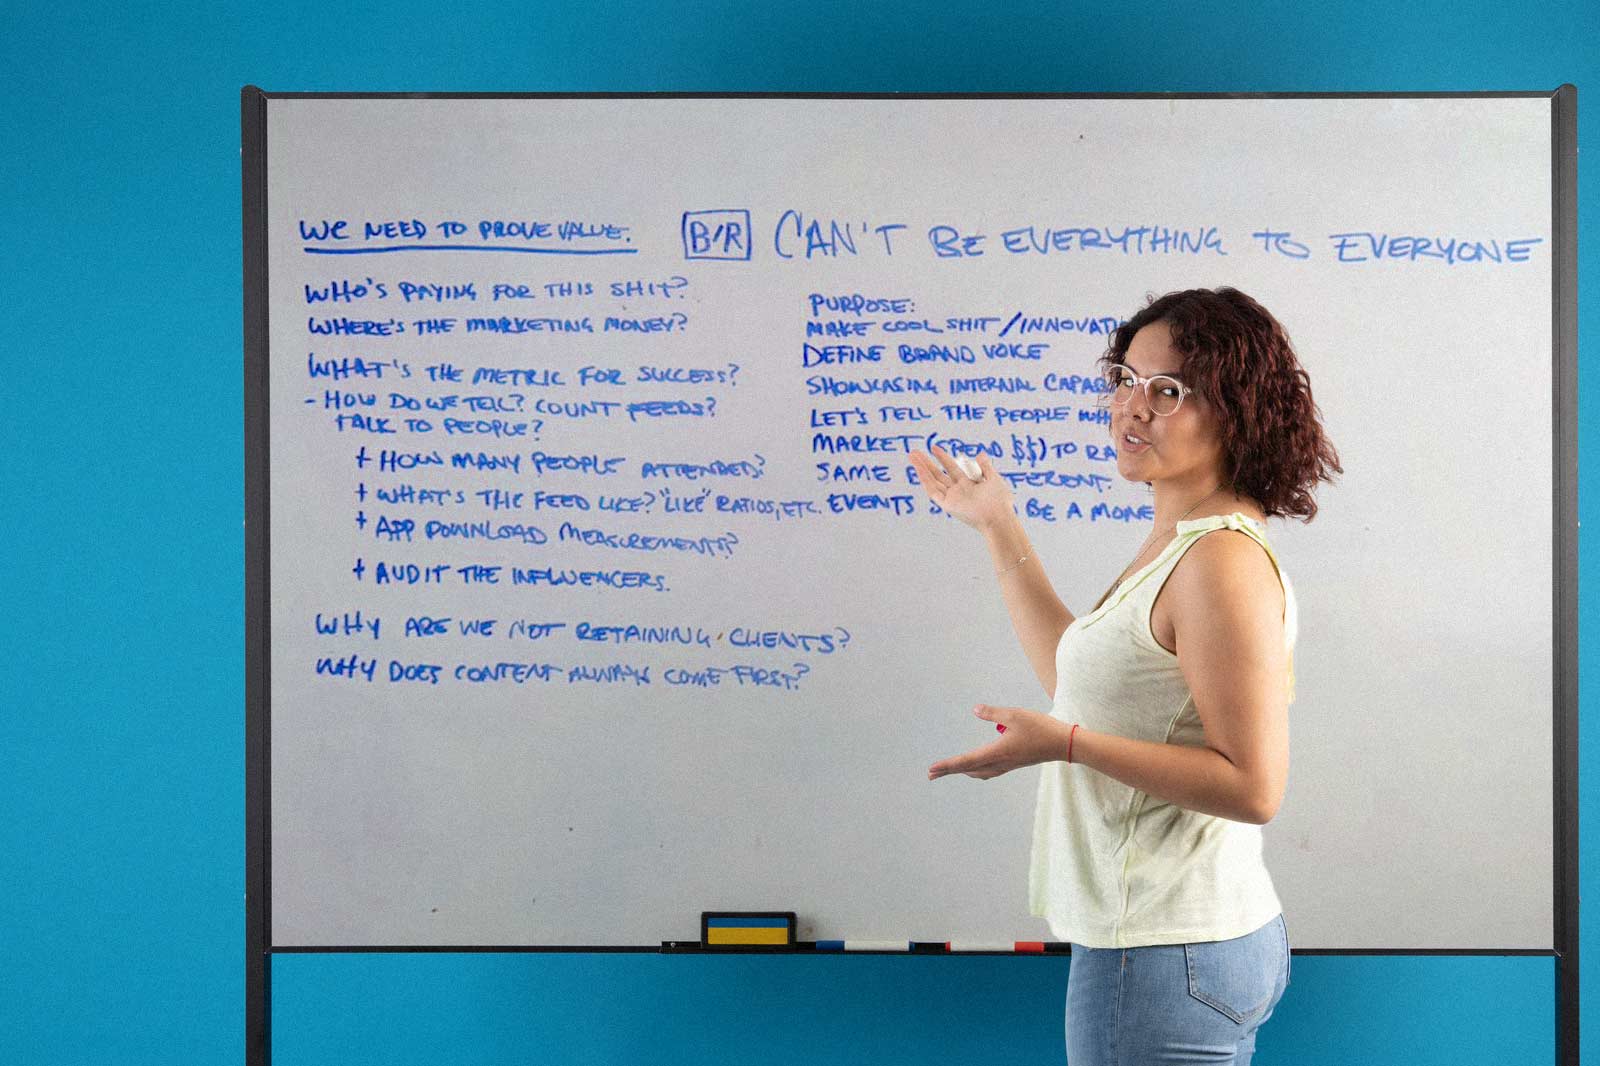 WE NEED TO PROVE VALUE.
WHO'S PAYING FOR THIS SHIT?
WHERE'S THE MARKETING MONEY?
WHAT'S THE METRIC FOR SUCCESS?
- HOW DO WE TELL? COUNT FEEDS?
TALK TO PEOPLE?
+ HOW MANY PEOPLE ATTENDED?
+ WHAT'S THE FEED LIKE? "LIKE" RATIOS, ETC.
+ APP DOWNLOAD MEASUREMENTS?
+ AUDIT THE INFLUENCERS.
WHY ARE WE NOT RETAINING CLIENTS?
WHY DOES CONTENT ALWAYS COME FIRST?
B/R CAN'T BE EVERYTHING TO EVERYONE
PURPOSE:
MAKE COOL SHIT / INNOVATI
DEFINE BRAND VOICE
SHOWCASING INTERNAL CAPAB
LET'S TELL THE PEOPLE WH
MARKET (SPEND $$) TO RA
SAME FFERENT.
EVENTS BE A MONE